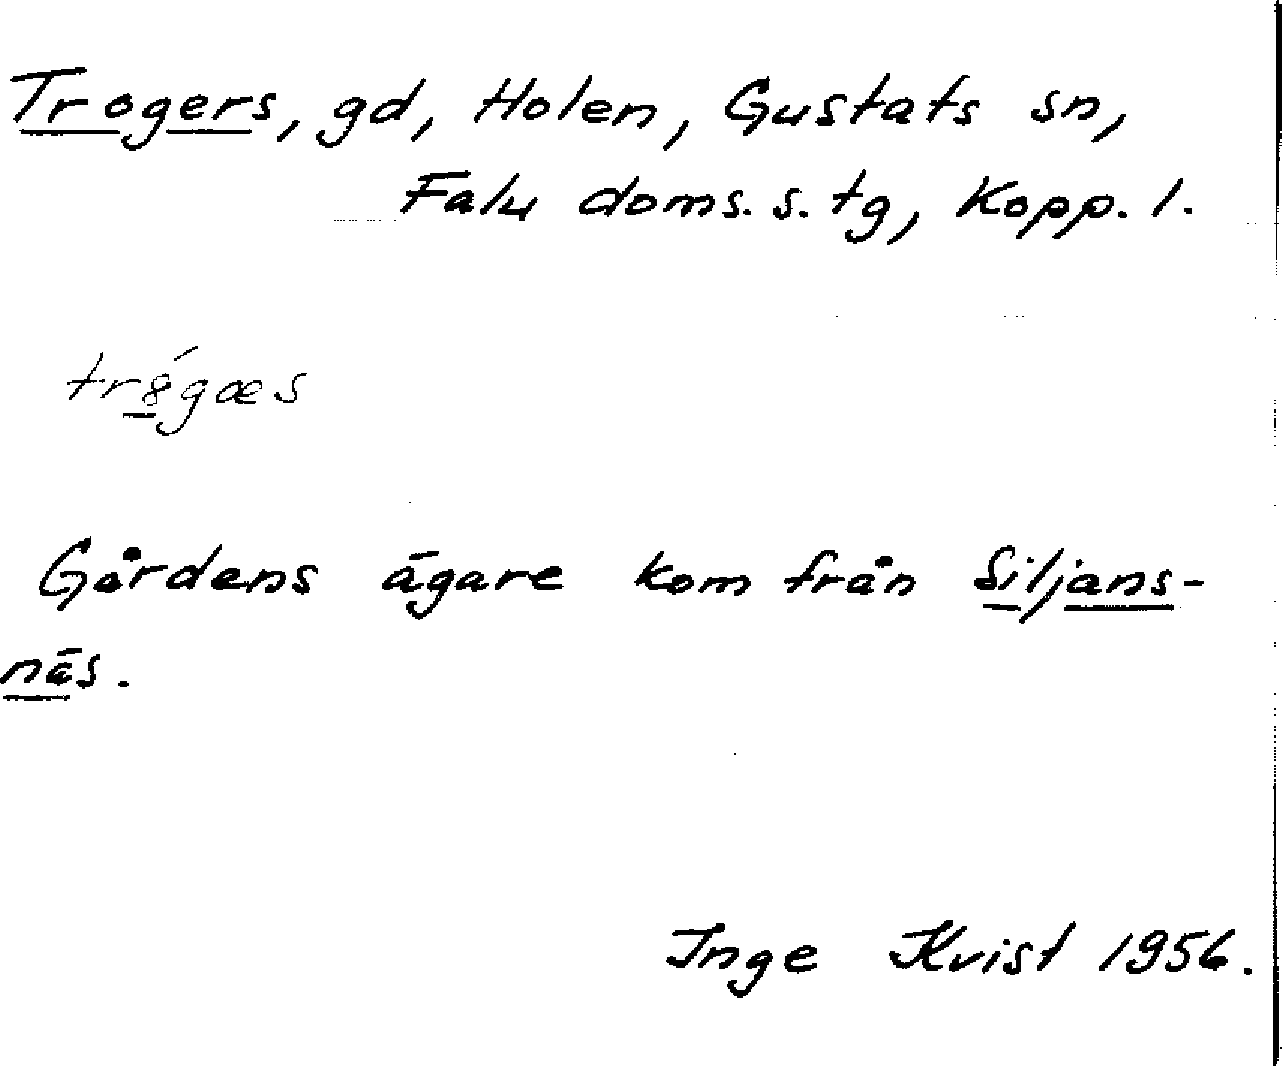 Trogers, gd, Holen, Gustafs sn,
Falu doms. s. tg, Kopp. l.
tr8́gæs
Gårdens ägare kom från Siljans-
näs.
Inge Kvist 1956.